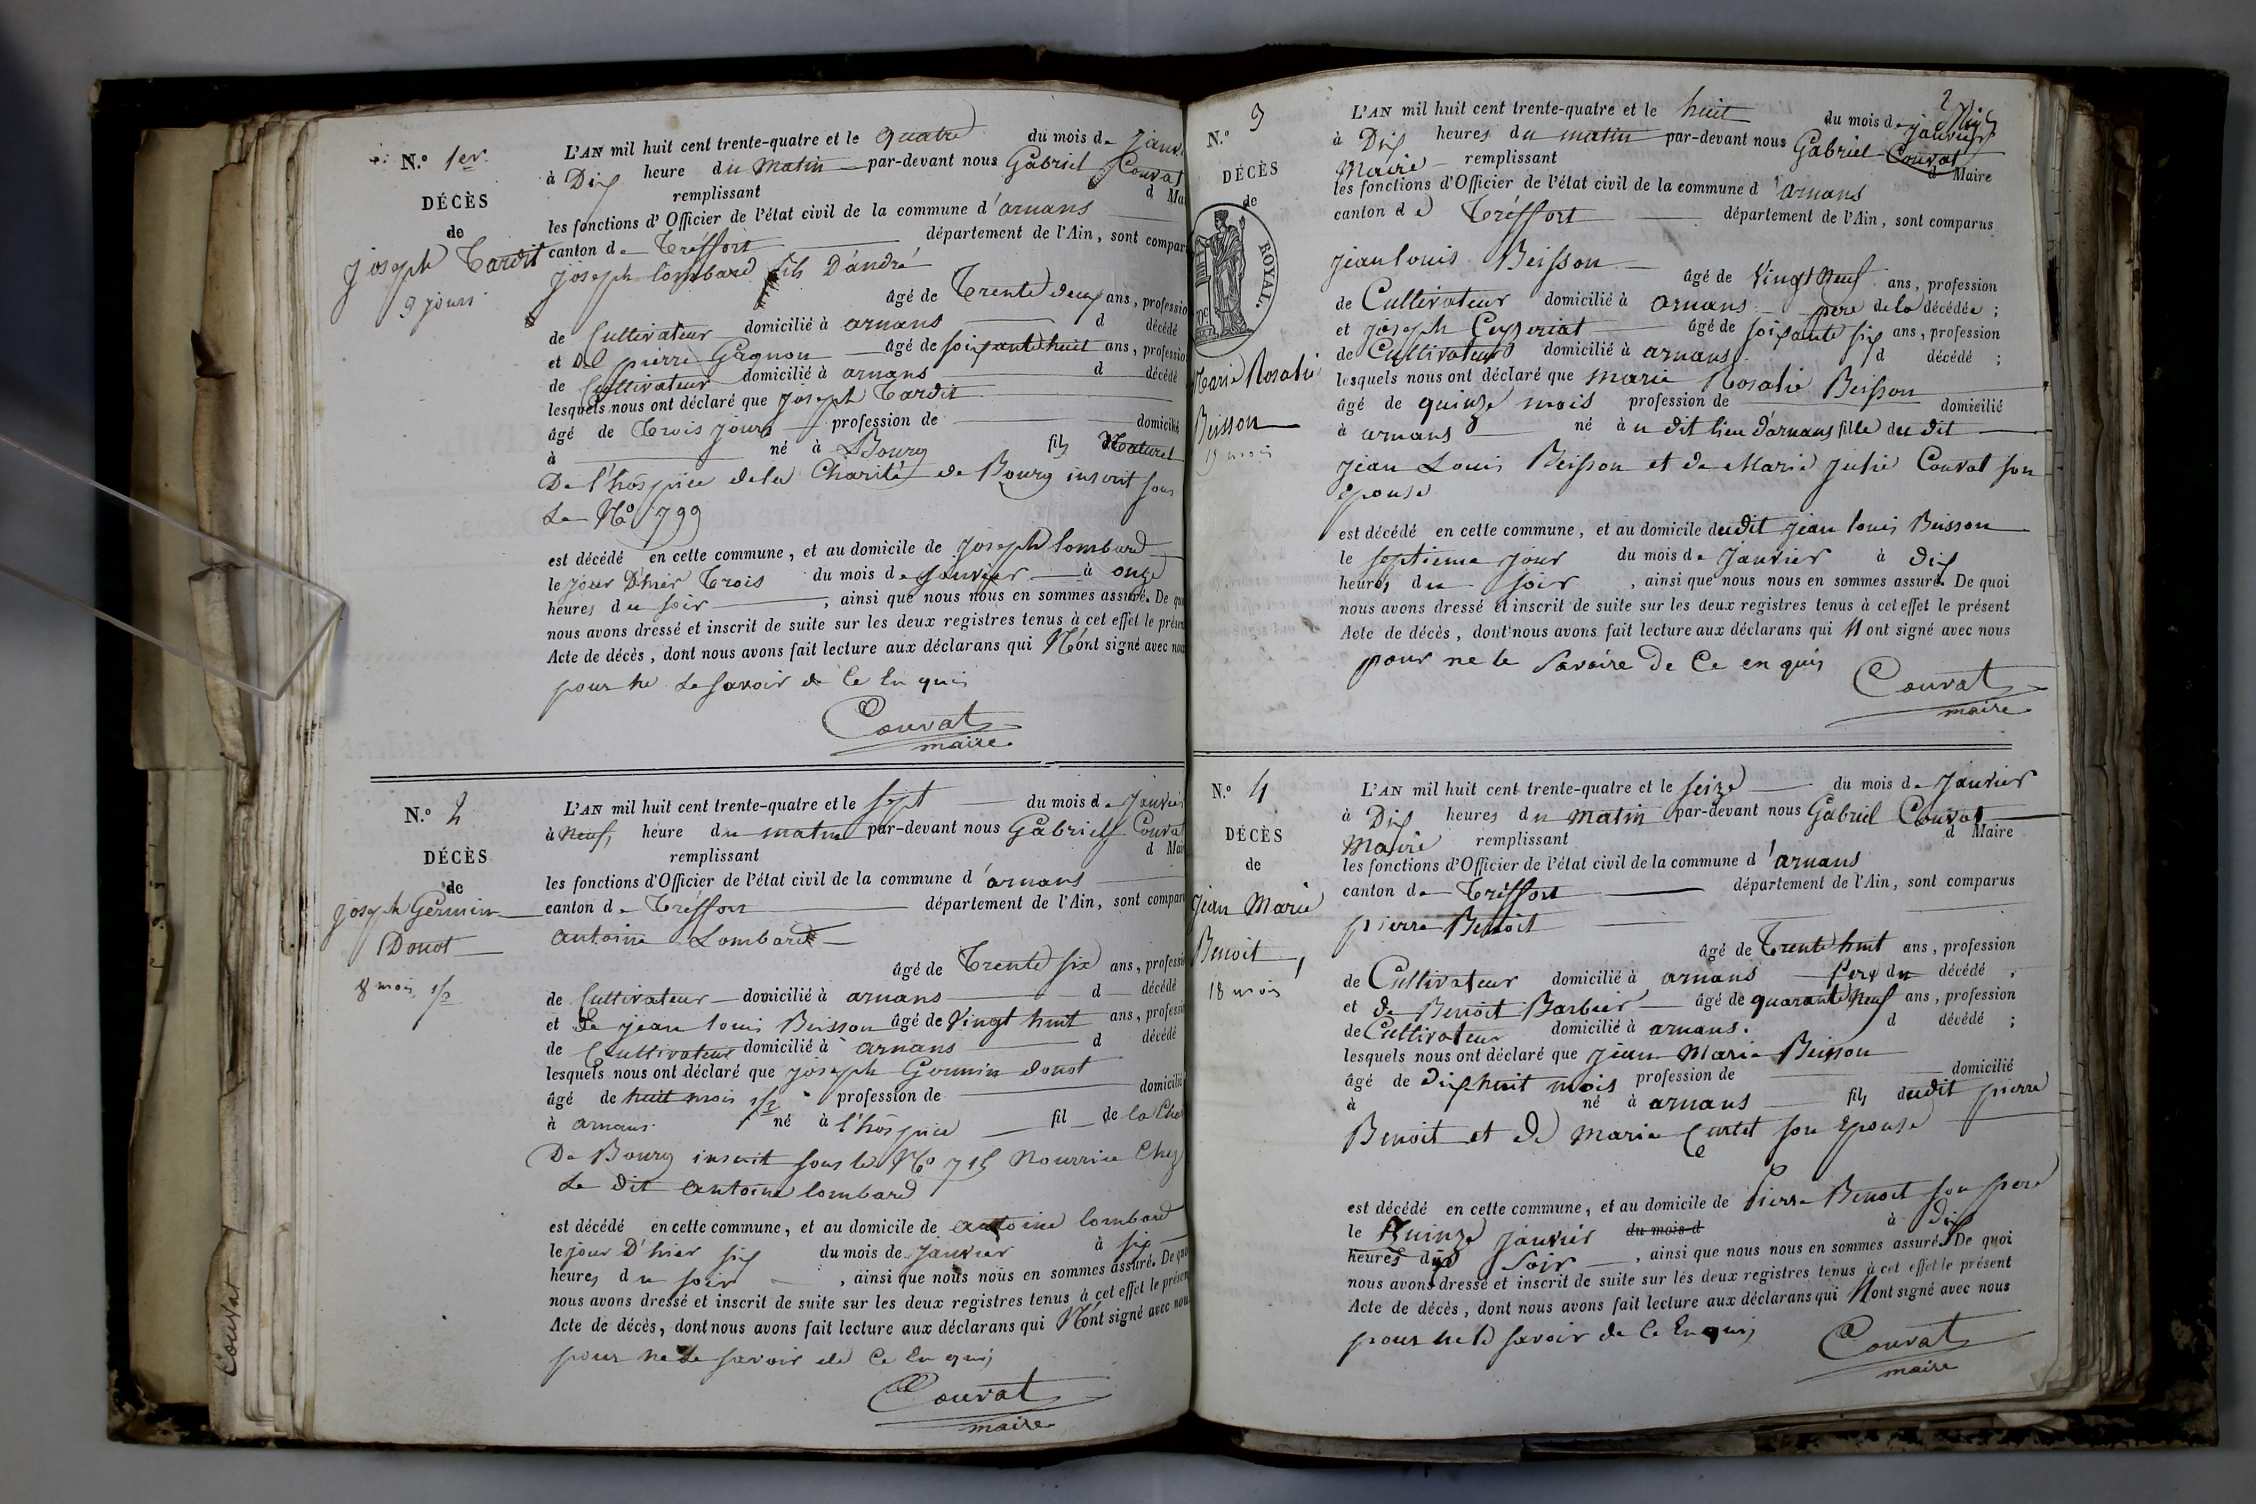 N.º 1er
DÉCÈS
de
joseph Tardit
9 jours
L'AN mil huit cent trente-quatre et le quatre du mois de Janv
à Dix heure du matin par-devant nous Gabriel Couvat
remplissant d Mai
les fonctions d'Officier de l'état civil de la commune d'arnans
canton de Tréffort département de l'Ain, sont compar
joseph lombard fils D'andré
âgé de Trente deux ans, professio
de Cultivateur domicilié à arnans d décédé
et de pierre Gagnon âgé de soixante huit ans, professio
de Cultivateur domicilié à arnans d décédé
lesquels nous ont déclaré que joseph Tardit
âgé de Trois jours profession de domicilié
à né à Bourg fils Naturel
De l'hôspice de la Charité de Bourg inscrit sous
Le No 799
est décédé en cette commune, et au domicile de joseph lombard
le jour D'hier Trois du mois de janvier à onze
heures du soir, ainsi que nous nous en sommes assuré. De quo
nous avons dressé et inscrit de suite sur les deux registres tenus à cet effet le présen
Acte de décès, dont nous avons fait lecture aux déclarans qui N'ont signé avec nou
pour ne Le savoir de Ce Enquis
Couvat
maire
N.º 2
DÉCÈS
de
joseph Germin
Donot
8 mois 1/2
L'AN mil huit cent trente-quatre et le sept du mois de Janvier
à Neuf heure du matin par-devant nous Gabriel Couvat
remplissant d Mai
les fonctions d'Officier de l'état civil de la commune d'arnans
canton de Tréffort département de l'Ain, sont compar
antoine Lombard
âgé de Trente six ans, professi
de Cultivateur domicilié à arnans d décédé
et de jean louis Buisson âgé de Vingt huit ans, professi
de Cultivateur domicilié à arnans d décédé
lesquels nous ont déclaré que joseph Germin donot
âgé de huit mois 1/2 profession de domicilié
à arnans né à l'hôspice fil de la Cha
De Bourg inscrit sous le No 715 Nourrice Chez
Le dit antoine lombard
est décédé en cette commune, et au domicile de antoine lombard
le jour D'hier six du mois de janvier à six
heures du soir, ainsi que nous nous en sommes assuré. De quo
nous avons dressé et inscrit de suite sur les deux registres tenus à cet effet le présen
Acte de décès, dont nous avons fait lecture aux déclarans qui N'ont signé avec nou
pour ne Le savoir de Ce Enquis
Couvat
maire
Couvat
2
N.º 3
DÉCÈS
de
ROYAL.
Marie Rosalie
Beisson
15 mois
L'AN mil huit cent trente-quatre et le huit du mois de janvier
à Dix heures du matin par-devant nous Gabriel Couvat
Maire remplissant d Maire
les fonctions d'Officier de l'état civil de la commune d'arnans
canton de Tréffort département de l'Ain, sont comparus
jean louis Beisson
âgé de Vingt Neuf ans, profession
de Cultivateur domicilié à arnans pere de la décédée;
et joseph Ceyzeriat âgé de soixante six ans, profession
de Cultivateur domicilié à arnans d décédé;
lesquels nous ont déclaré que marie Rosalie Beisson
âgé de quinze mois profession de domicilié
à arnans né à u dit lieu d'arnans fille du dit
jean Louis Beisson et de Marie julie Couvat son
epouse
est décédé en cette commune, et au domicile dudit jean louis Buisson
le septieme jour du mois de Janvier à dix
heures du soir, ainsi que nous nous en sommes assuré. De quoi
nous avons dressé et inscrit de suite sur les deux registres tenus à cet effet le présent
Acte de décès, dont nous avons fait lecture aux déclarans qui N ont signé avec nous
pour ne le savoire de Ce enquis
Couvat
maire
N.º 4
DÉCÈS
de
jean Marie
Benoit,
18 mois
L'AN mil huit cent trente-quatre et le seize du mois de Janvier
à Dix heures du matin par-devant nous Gabriel Couvat
Maire remplissant d Maire
les fonctions d'Officier de l'état civil de la commune d'arnans
canton de Tréffort département de l'Ain, sont comparus
pierre Benoit
âgé de Trente huit ans, profession
de Cultivateur domicilié à arnans pere du décédé,
et de Benoit Barbier âgé de quarante Neuf ans, profession
de Cultivateur domicilié à arnans. d décédé;
lesquels nous ont déclaré que jean Marie Buisson
âgé de dix huit mois profession de domicilié
à né à arnans fils dudit pierre
Benoit et de marie Curtet son Epouse
est décédé en cette commune, et au domicile de Pierre Benoit son pere
le Quinze janvier du mois d à dix
heures du soir, ainsi que nous nous en sommes assuré. De quoi
nous avons dressé et inscrit de suite sur les deux registres tenus à cet effet le présent
Acte de décès, dont nous avons fait lecture aux déclarans qui N ont signé avec nous
pour ne le savoir de Ce Enquis
Couvat
maire